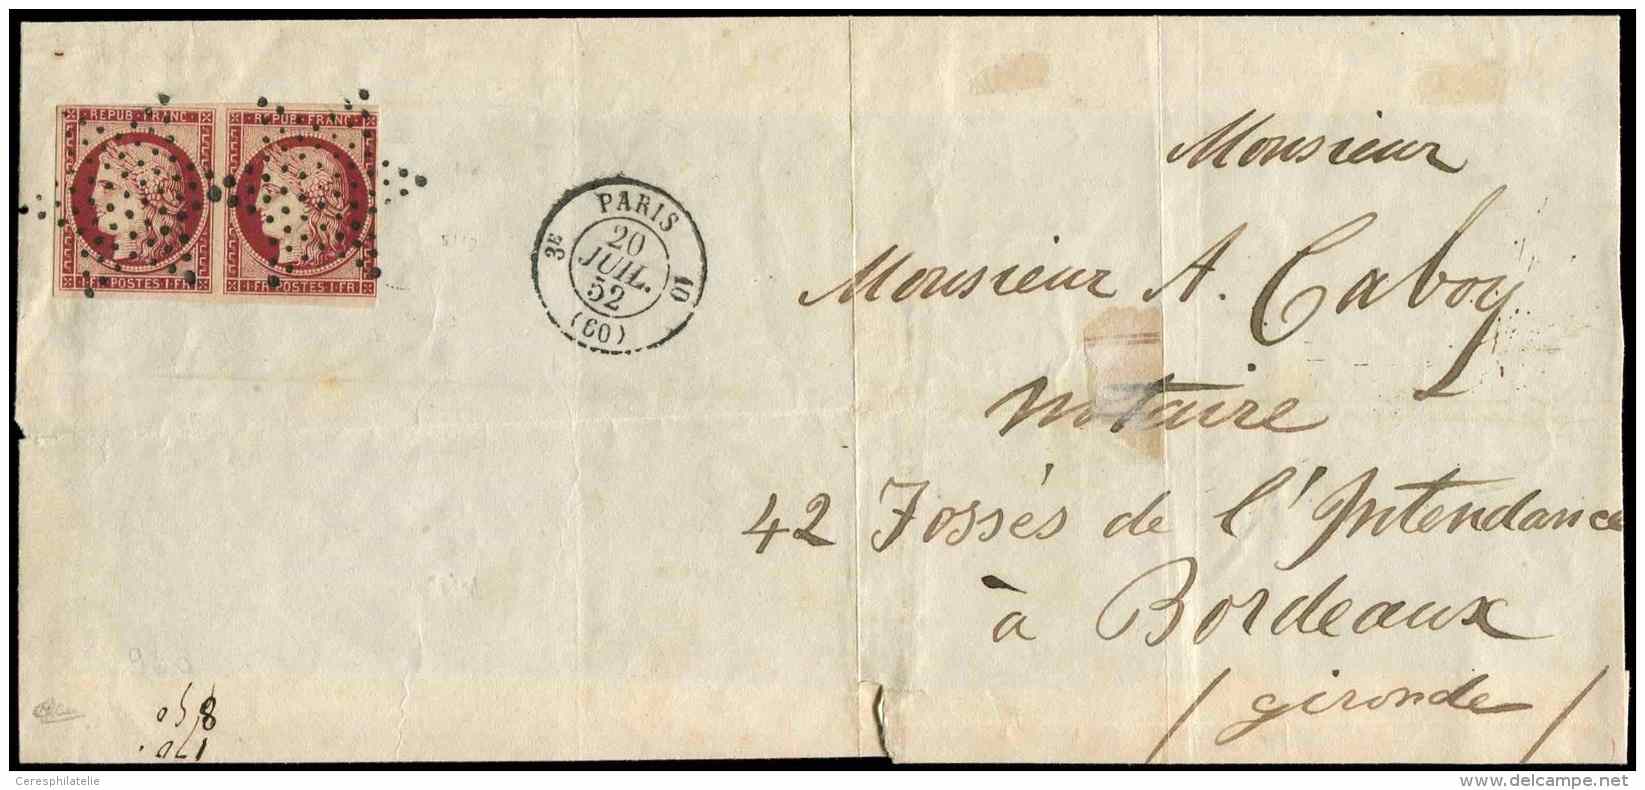 REPUB·FRANC·
REPUB·FRANC·
1·FR·POSTES·1·FR
1·FR·POSTES·1·FR
PARIS
3E
20
JUIL.
52
10
(60)
Monsieur
Monsieur A. Caboy
notaire
42 Fossés de l'Intendance
à Bordeaux
/ gironde /
Ceresphilatelie
delcampe.net